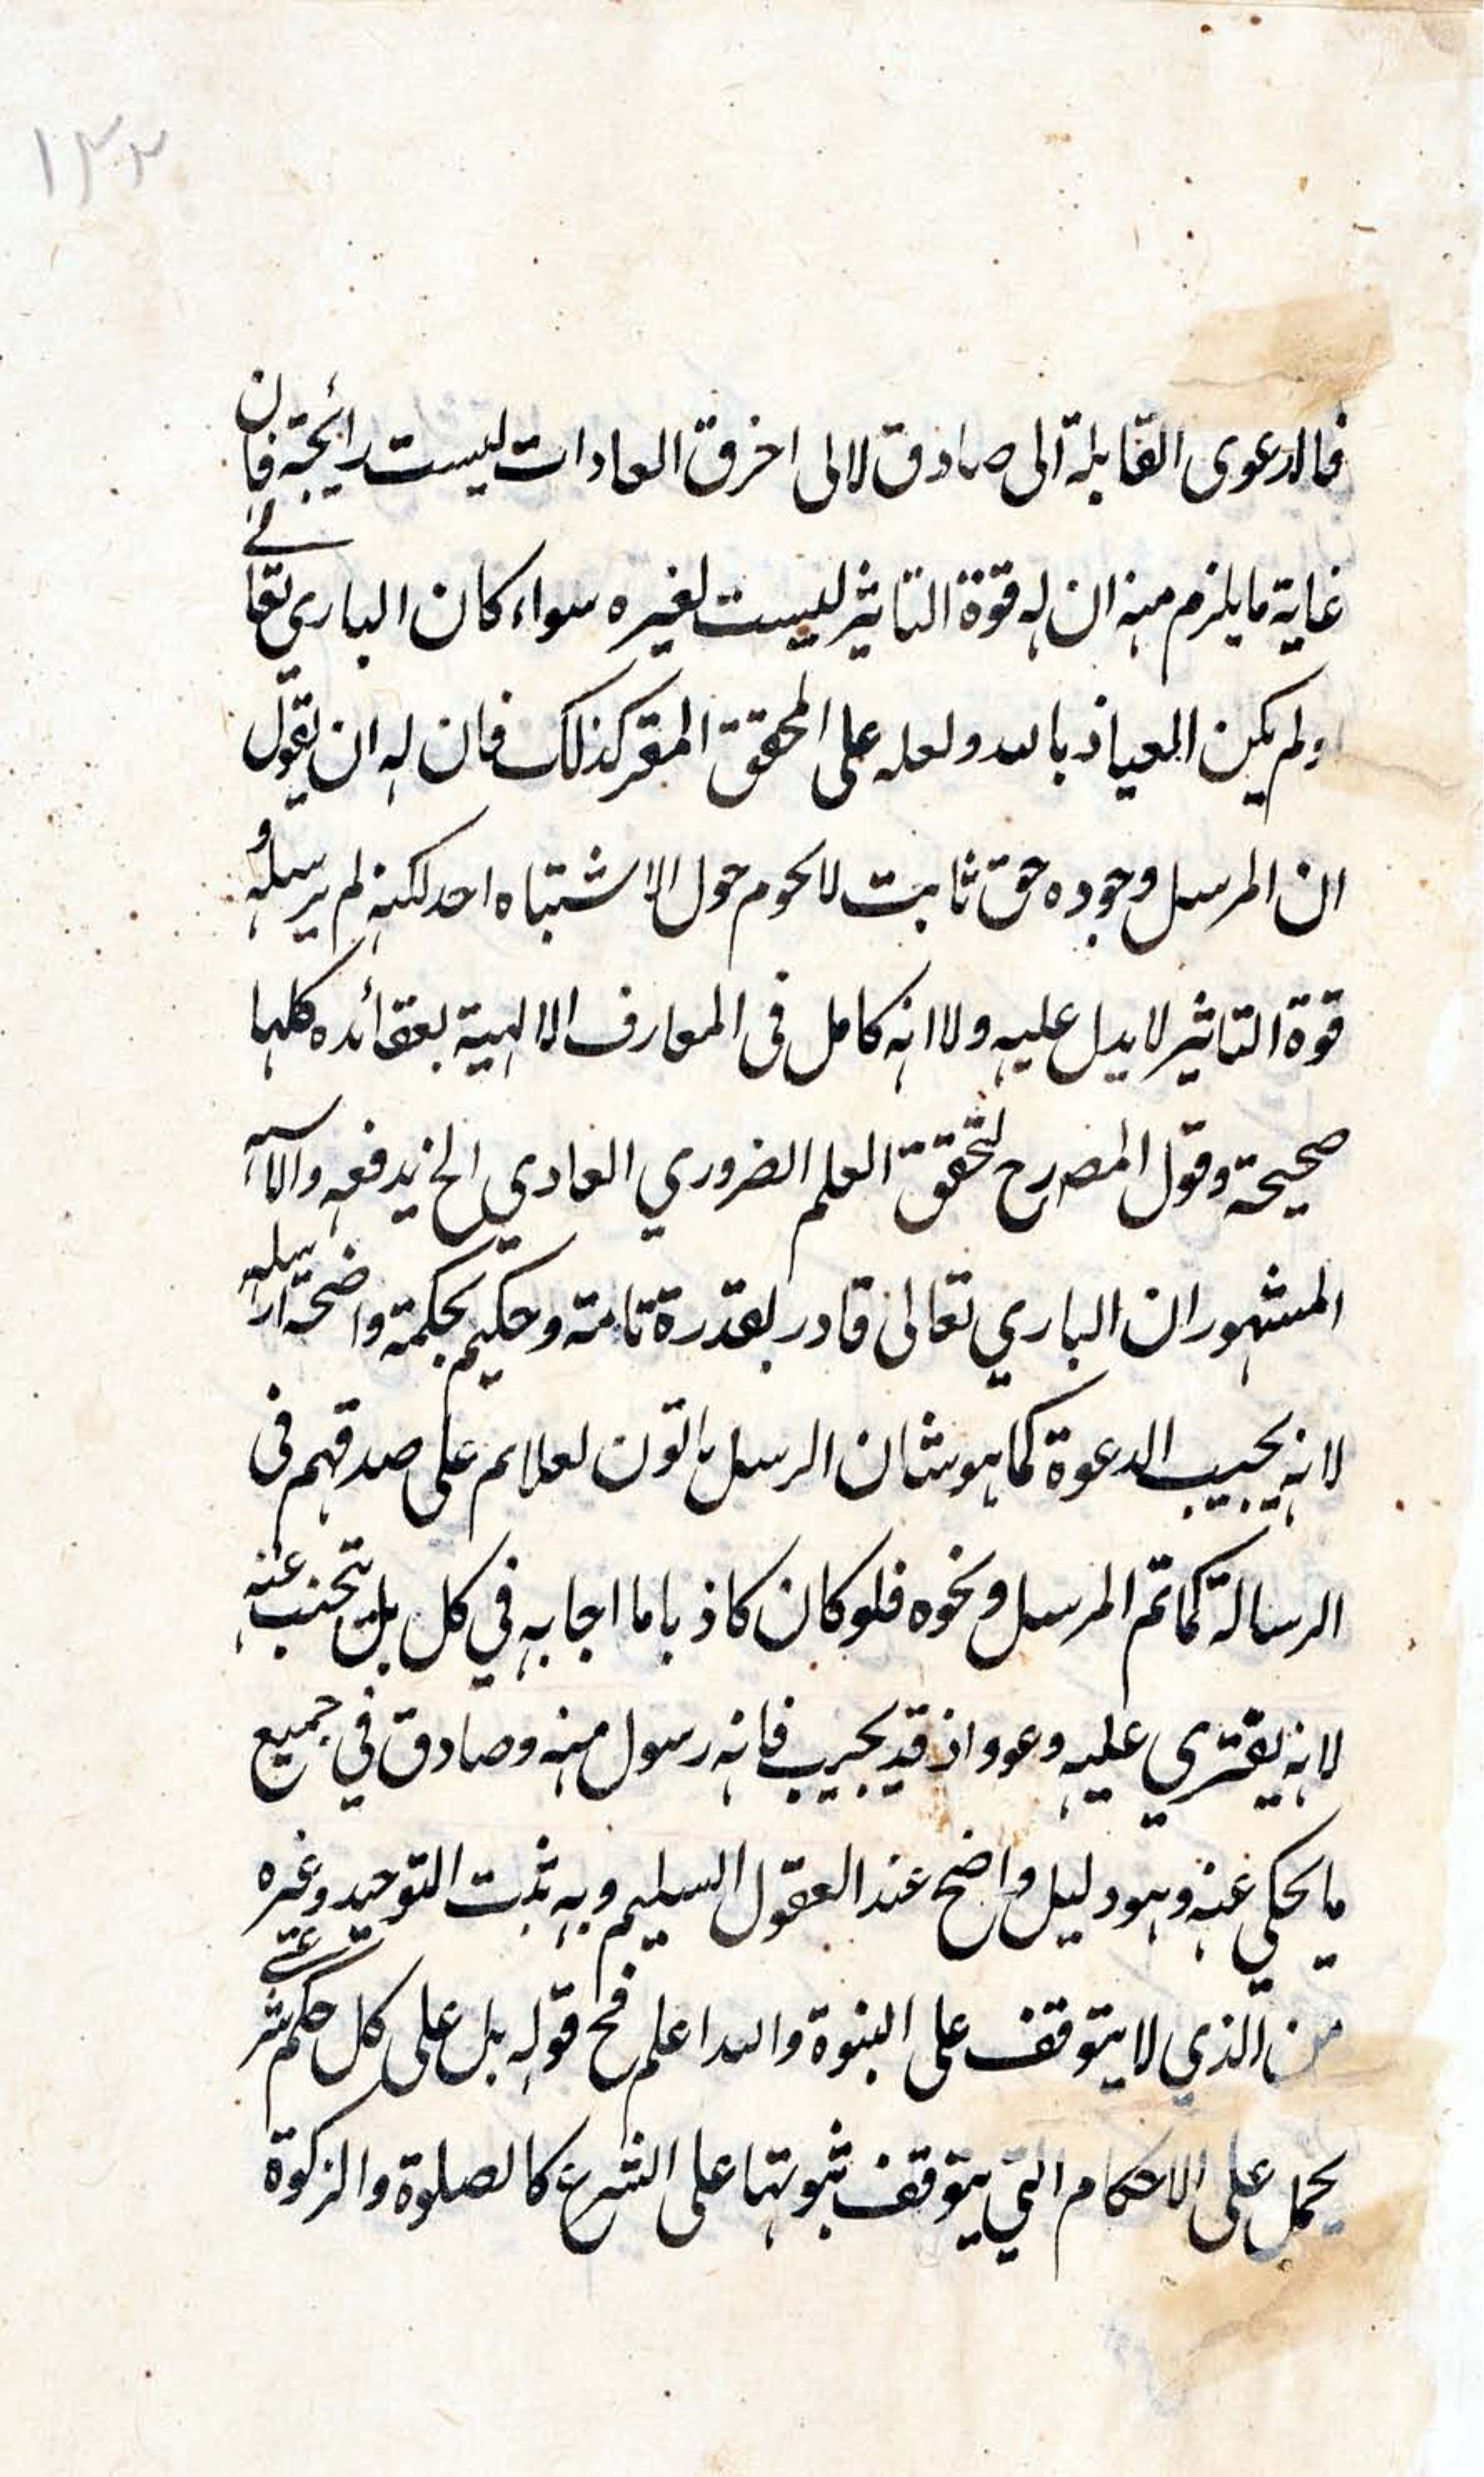 ١٣٣
فالدعوى القابلة الى صادق لالى اخرق العادات ليست رائجة فان
غاية ما يلزم منه ان له قوة التاثير ليست لغيره سواء كان الباري تعالے
او لم يكن العياذ بالله ولعله على المحقق المقر كذلك فان له ان يقول
ان المرسل وجوده حق ثابت لا يحوم حول الاشتباه احد لكنه لم يرسله و
قوة التاثير لا يدل عليه ولا انه كامل فى المعارف الالهية بعقائده كلها
صحيحة وقول المصرح لتحقق العلم الضروري العادي الخ يدفعه
المشهور ان الباري تعالى قادر بقدرة تامة وحكيم بحكمة واضحة ارسله
لانه يجيب الدعوة كما هو شان الرسل ياتون لعلايم على صدقهم فى
الرسالة كماتم المرسل ونحوه فلو كان كاذبا ما اجابه في كل بل يتجنب عنه
لانه يفتري عليه وعوو اذ قد يجيب فانه رسول منه وصادق في جميع
ما يحكي عنه وهو دليل واضح عند العقول السليم وبه ثبت التوحيد وغيره
من الذي لا يتوقف على النبوة والله اعلم فح قوله بل على كل حكم شرعى
يحمل على الاحكام التي يتوقف ثبوتها على الشرع كالصلوة والزكوة